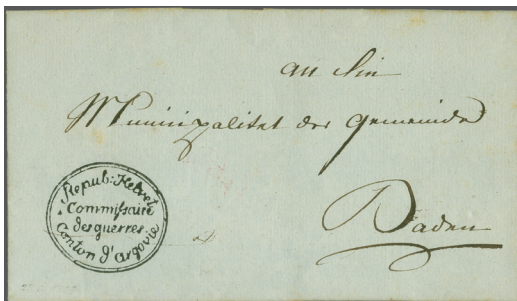 an die
Municipalitet der Gemeinde
Baden
Repub: Helvet
Commissaire
des guerres
Conton d'argovie